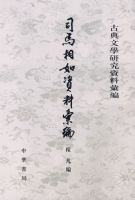 古典文學研究資料彙編
司馬相如資料彙編
編
中華書局